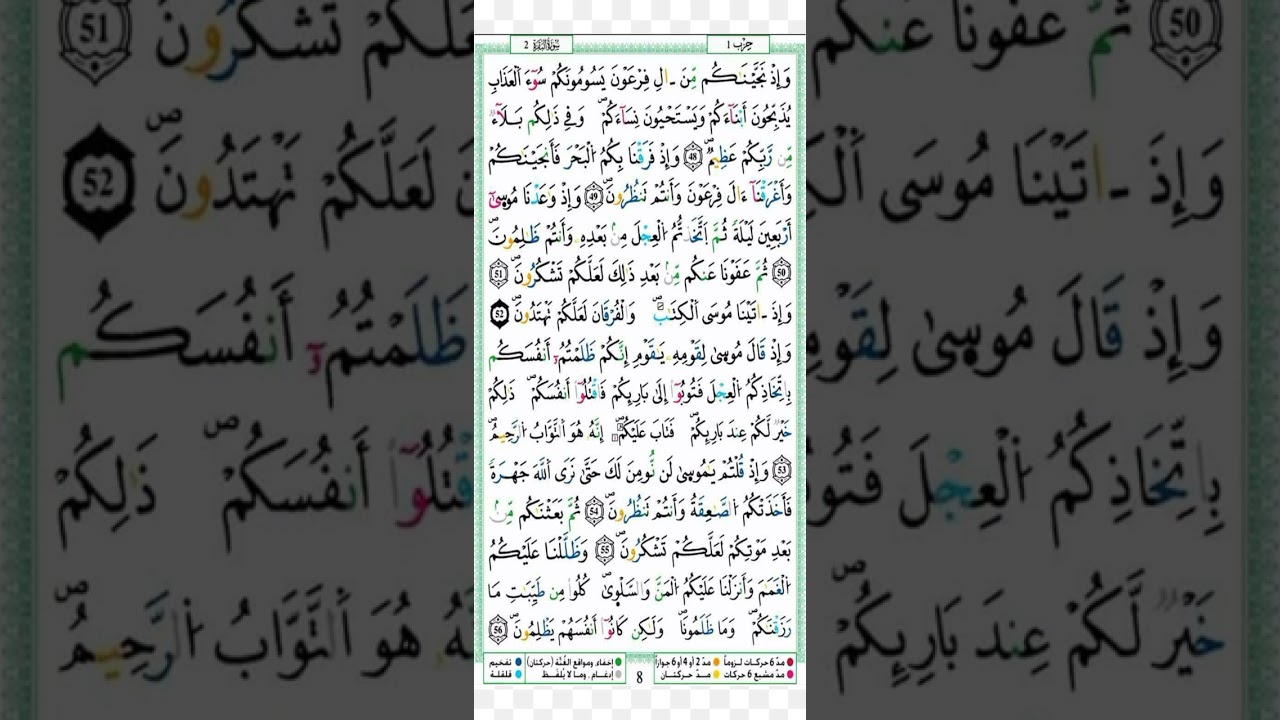 حِزْب 1
سُورَةُ الْبَقَرَة 2
وَإِذْ نَجَّيْنَٰكُم مِّنَ ـَالِ فِرْعَوْنَ يَسُومُونَكُمْ سُوٓءَ اَلْعَذَابِ
يُذَبِّحُونَ أَبْنَآءَكُمْ وَيَسْتَحْيُونَ نِسَآءَكُمْ وَفِي ذَٰلِكُم بَلَآءٌ
مِّن رَّبِّكُمْ عَظِيمٌ 48 وَإِذْ فَرَقْنَا بِكُمُ اُلْبَحْرَ فَأَنجَيْنَٰكُمْ
وَأَغْرَقْنَآ ءَالَ فِرْعَوْنَ وَأَنتُمْ تَنظُرُونَ 49 وَإِذْ وَٰعَدْنَا مُوسَىٰٓ
أَرْبَعِينَ لَيْلَةً ثُمَّ اَتَّخَذتُّمُ اُلْعِجْلَ مِنۢ بَعْدِهِۦ وَأَنتُمْ ظَٰلِمُونَ
50 ثُمَّ عَفَوْنَا عَنكُم مِّنۢ بَعْدِ ذَٰلِكَ لَعَلَّكُمْ تَشْكُرُونَ 51
وَإِذَ ـاتَيْنَا مُوسَى اَلْكِتَٰبَ وَالْفُرْقَانَ لَعَلَّكُمْ تَهْتَدُونَ 52
وَإِذْ قَالَ مُوسَىٰ لِقَوْمِهِۦ يَٰقَوْمِ إِنَّكُمْ ظَلَمْتُمُۥٓ أَنفُسَكُم
بِاتِّخَاذِكُمُ اُلْعِجْلَ فَتُوبُوٓا۟ إِلَىٰ بَارِئِكُمْ فَاقْتُلُوٓا۟ أَنفُسَكُمْ ذَٰلِكُمْ
خَيْرٌ لَّكُمْ عِندَ بَارِئِكُمْ فَتَابَ عَلَيْكُمْ إِنَّهُۥ هُوَ اَلتَّوَّابُ اُلرَّحِيمُ
53 وَإِذْ قُلْتُمْ يَٰمُوسَىٰ لَن نُّومِنَ لَكَ حَتَّىٰ نَرَى اَللَّهَ جَهْرَةً
فَأَخَذَتْكُمُ اُلصَّٰعِقَةُ وَأَنتُمْ تَنظُرُونَ 54 ثُمَّ بَعَثْنَٰكُم مِّنۢ
بَعْدِ مَوْتِكُمْ لَعَلَّكُمْ تَشْكُرُونَ 55 وَظَلَّلْنَا عَلَيْكُمُ
اُلْغَمَٰمَ وَأَنزَلْنَا عَلَيْكُمُ اُلْمَنَّ وَالسَّلْوَىٰ كُلُوا۟ مِن طَيِّبَٰتِ مَا
رَزَقْنَٰكُمْ وَمَا ظَلَمُونَا وَلَٰكِن كَانُوٓا۟ أَنفُسَهُمْ يَظْلِمُونَ 56
مدّ 6 حركات لزوماً مدّ 2 أو 4 أو 6 جوازاً إخفاء، ومواقع الغُنَّة (حركتان) تفخيم
مدّ مشبع 6 حركات مدّ حركتان إدغام، وما لا يُلفظ قلقلة
8